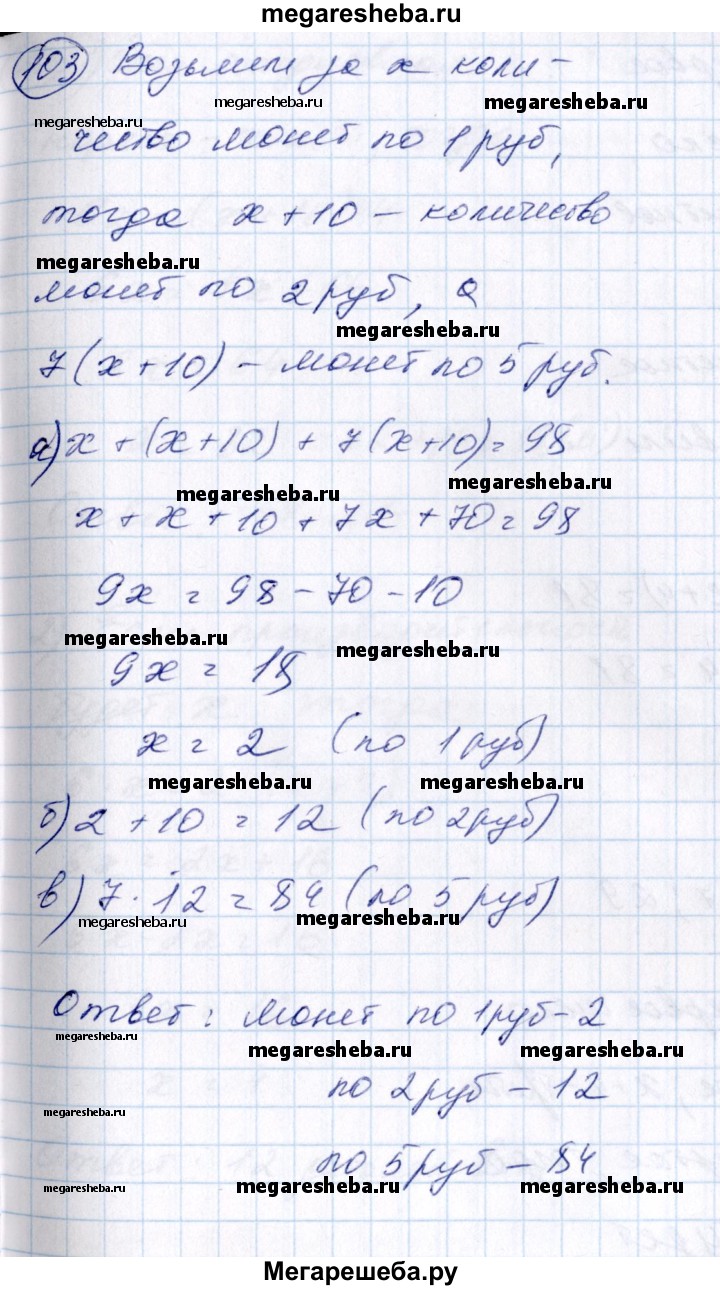 megaresheba.ru
103 Возьмем за x коли-
megaresheba.ru megaresheba.ru
megaresheba.ru
чество монет по 1 руб,
тогда x + 10 – количество
megaresheba.ru
монет по 2 руб, а
megaresheba.ru
7(x + 10) – монет по 5 руб.
а) x + (x + 10) + 7(x + 10) = 98
megaresheba.ru megaresheba.ru
x + x + 10 + 7x + 70 = 98
9x = 98 - 70 - 10
9x = 18
megaresheba.ru
x = 2 (по 1 руб)
megaresheba.ru megaresheba.ru
б) 2 + 10 = 12 (по 2 руб)
в) 7 · 12 = 84 (по 5 руб)
megaresheba.ru megaresheba.ru
Ответ: монет по 1 руб - 2
megaresheba.ru megaresheba.ru megaresheba.ru
по 2 руб – 12
megaresheba.ru
по 5 руб – 84
megaresheba.ru megaresheba.ru megaresheba.ru
Мегарешеба.ру